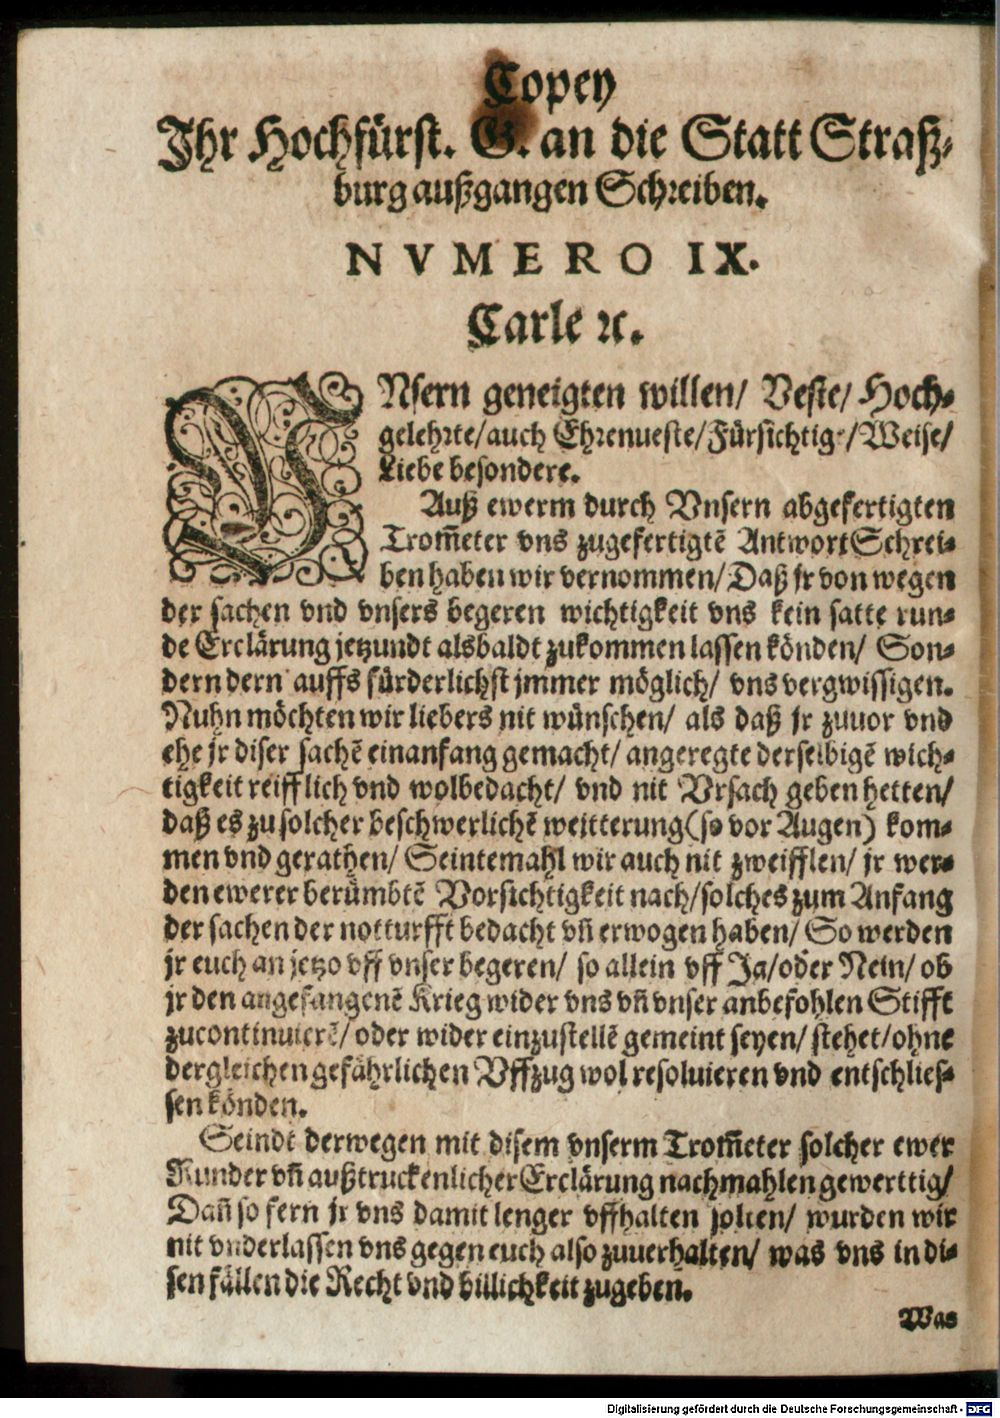 Copey
Ihr Hochfürst. G. an die Statt Straß-
burg außgangen Schreiben.
NVMERO IX.
Carle ꝛc.
VNsern geneigten willen/ Veste/ Hoch-
gelehrte/auch Ehrenueste/Fürsichtige/Weise/
Liebe besondere.
Auß ewerm durch Vnsern abgefertigten
Trom̃eter vns zugefertigtẽ Antwort Schrei-
ben haben wir vernommen/ Daß jr von wegen
der sachen vnd vnsers begeren wichtigkeit vns kein satte run-
de Erclärung jetzundt alsbaldt zukommen lassen könden/ Son-
dern dern auffs fürderlichst jmmer möglich/ vns vergwissigen.
Nuhn möchten wir liebers nit wünschen/ als daß jr zuuor vnd
ehe jr diser sachẽ ein anfang gemacht/ angeregte derselbigẽ wich-
tigkeit reifflich vnd wolbedacht/ vnd nit Vrsach geben hetten/
daß es zu solcher beschwerlichẽ weitterung (so vor Augen) kom-
men vnd gerathen/ Seintemahl wir auch nit zweifflen/ jr wer-
den ewerer berümbtẽ Vorsichtigkeit nach/ solches zum Anfang
der sachen der notturfft bedacht vñ erwogen haben/ So werden
jr euch an jetzo vff vnser begeren/ so allein vff Ja/oder Nein/ ob
jr den angefangenẽ Krieg wider vns vñ vnser anbefohlen Stifft
zucontinuierẽ/ oder wider einzustellẽ gemeint seyen/ stehet/ohne
dergleichen gefährlichen Vffzug wol resoluieren vnd entschlies-
sen könden.
Seindt derwegen mit disem vnserm Trom̃eter solcher ewer
Runder vñ außtruckenlicher Erclärung nachmahlen gewerttig/
Dañ so fern jr vns damit lenger vffhalten solten/ wurden wir
nit vnderlassen vns gegen euch also zuuerhalten/ was vns in di-
sen fällen die Recht vnd billichkeit zugeben.
Was
Digitalisierung gefördert durch die Deutsche Forschungsgemeinschaft - DFG